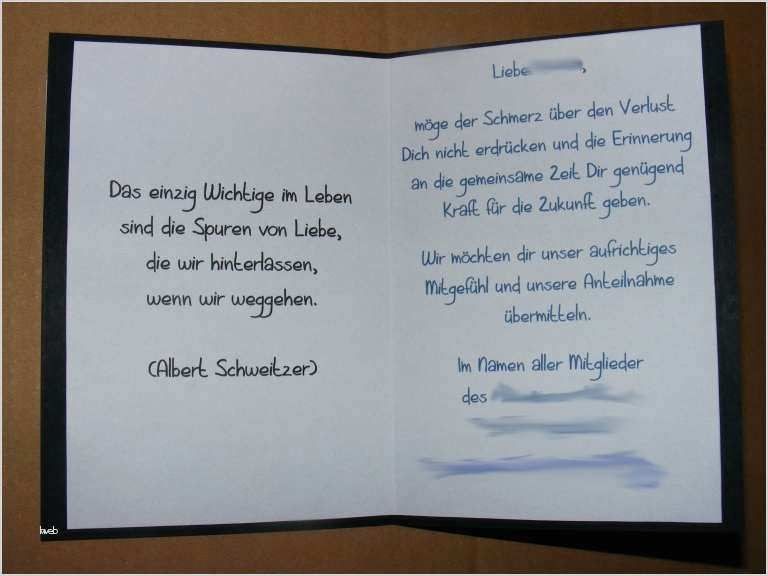 Das einzig Wichtige im Leben
sind die Spuren von Liebe,
die wir hinterlassen,
wenn wir weggehen.
(Albert Schweitzer)
Liebe ,
möge der Schmerz über den Verlust
Dich nicht erdrücken und die Erinnerung
an die gemeinsame Zeit Dir genügend
Kraft für die Zukunft geben.
Wir möchten dir unser aufrichtiges
Mitgefühl und unsere Anteilnahme
übermitteln.
Im Namen aller Mitglieder
des